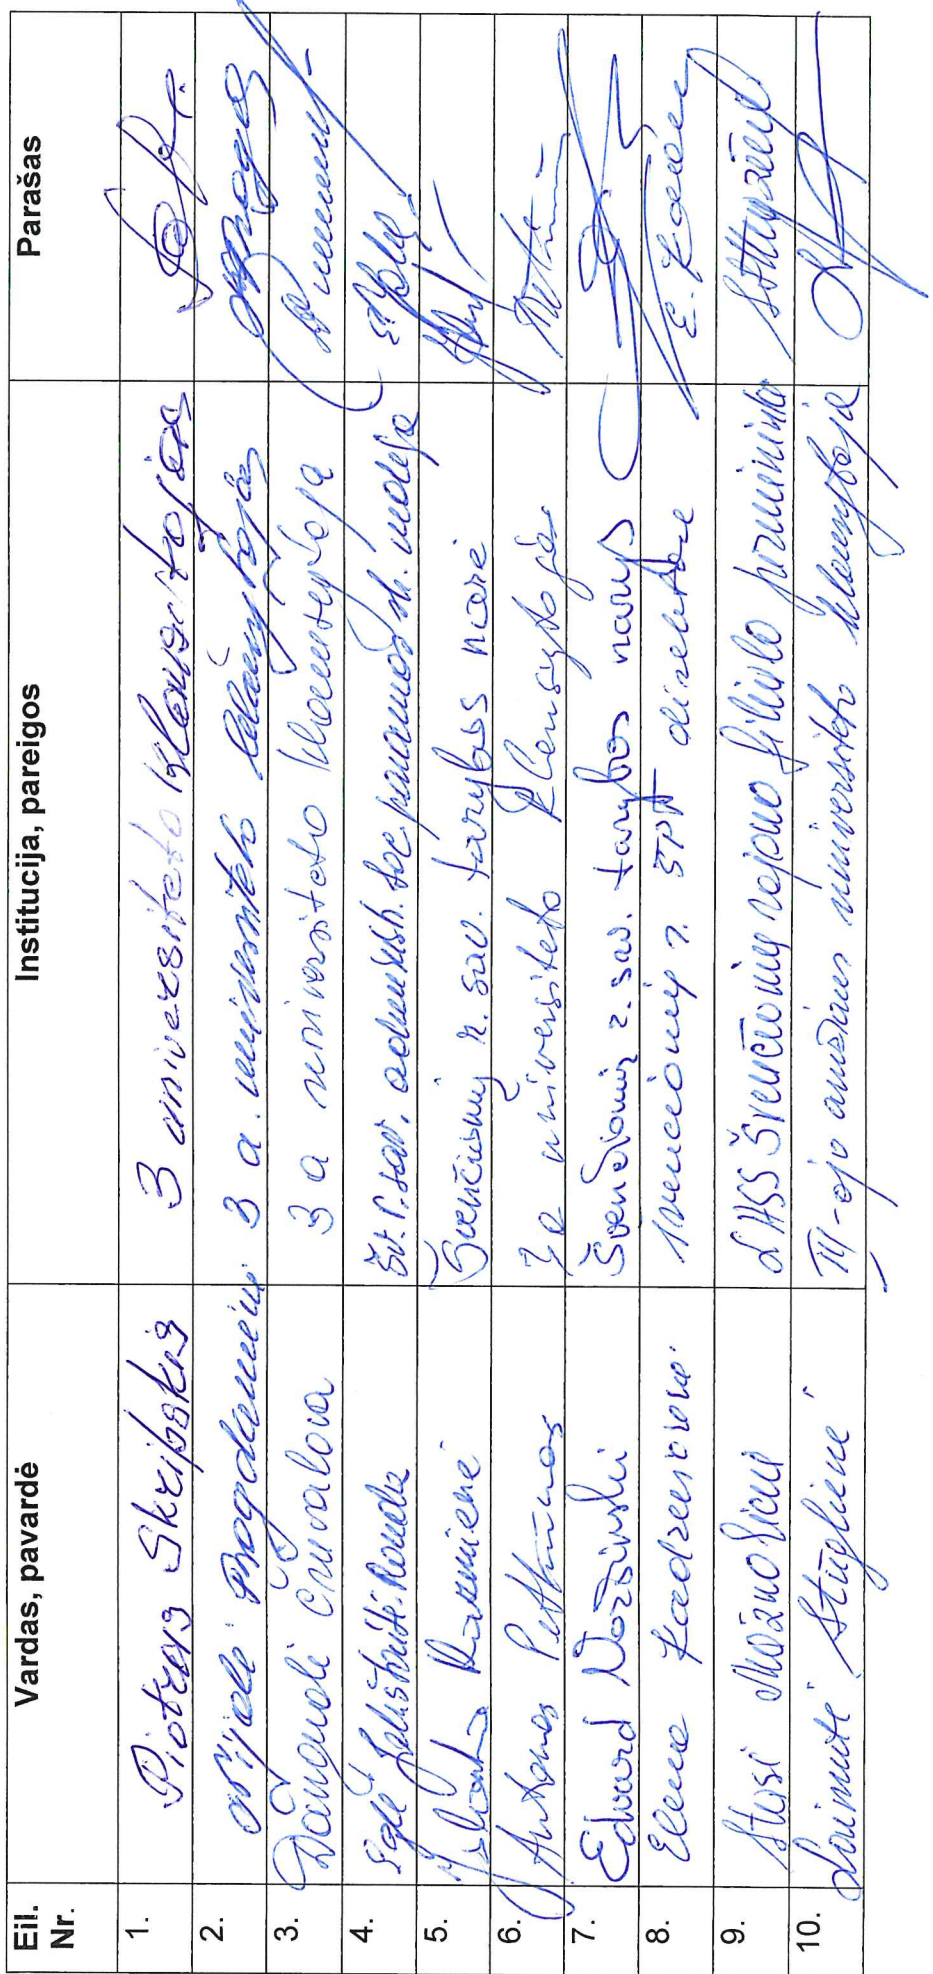 Eil. Nr. Vardas, pavardė Institucija, pareigos Parašas
1. Piotras Skripskis 3 universiteto klausytojas
2. Nijolė 3 a. universiteto klausytojas
3. Danguolė Čiuvalova 3 a universiteto klausytoja
4. Eglė Šv. r. sav. administr. soc. paramos sk. vedėja
5. Jolanta Švenčionių r. sav. tarybos narė
6. Antanas 3 a universiteto klausytojas
7. Edvard Švenčionių r. sav. tarybos narys
8. Elena Švenčionių r. ŠPT direktorė E.
9. Stasė LASS Švenčionių rajono filialo pirmininkė
10. Laimutė Stuglienė III-ojo amžiaus universiteto klausytoja